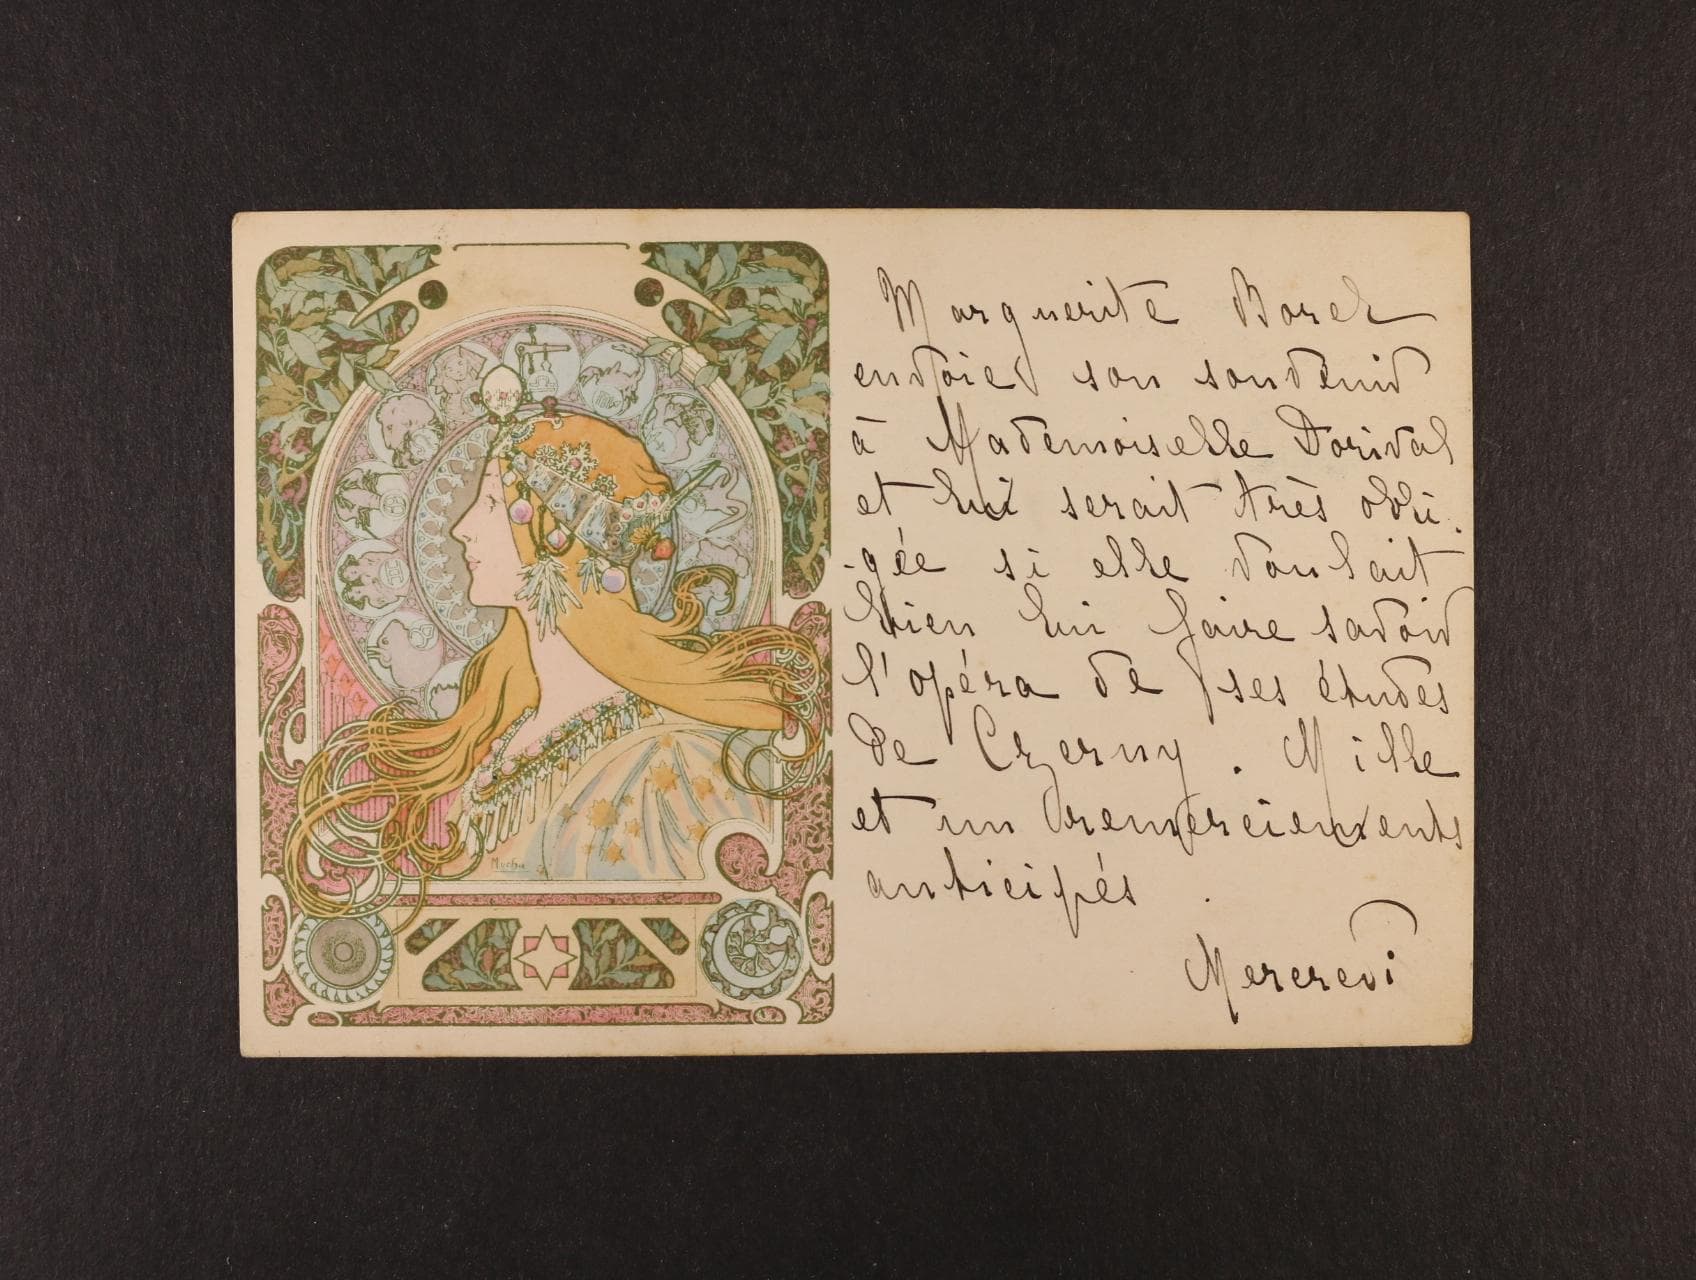 Mucha
Marguerite Borel
envoie son souvenir
à Mademoiselle Dorival
et lui serait très obli-
-gée si elle voulait
bien lui faire savoir
l'opéra de ses études
de Czerny. Mille
et un remerciements
anticipés.
Mercredi